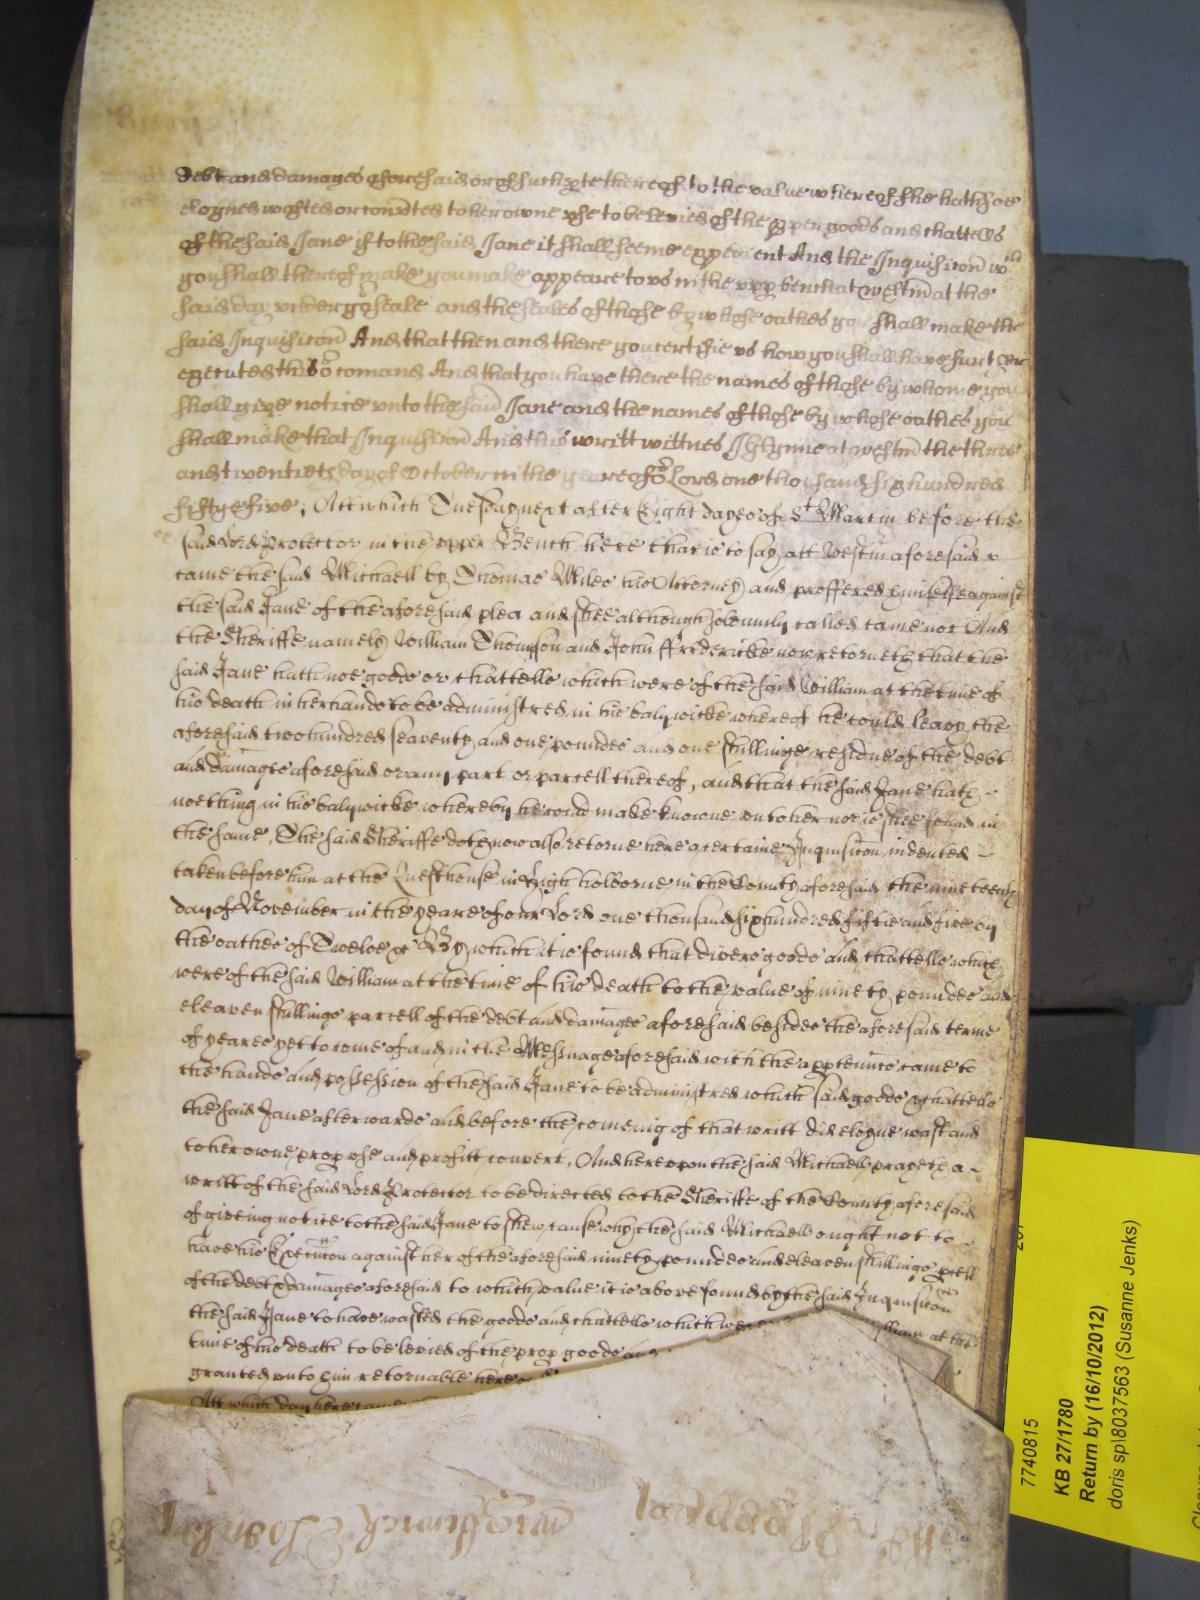 debt and damages aforesaid or of such pte thereof to the value whereof she hath soe
eloyned wasted or convted to her owne vse to be levied of the pper goods and chattells
of the said Jane if to the said Jane it shall seeme expedient And the Inquisicon wch
you shall thereof make you make appeare to vs in the vpp bench at Westm at the
said day vnder yor seale and the seales of those by whose oathes you shall make the
said Inquisicon And that then and there you certifie vs how you shall have
executed this or comand And that you have there the names of those by whome you
shall give notice vnto the said Jane and the names of those by whose oathes you
shall make that Inquisicon And this writt wittnes J Glynne at Westm the three
and twentieth day of October in the yeare of or Lord one thousand six hundred
fifty & five; Att which Tuesday next after Eight dayes of St Martin before the
said Lord Protector in the upper Bench here that is to say att Westm aforesaid
came the said Michaell by Thomas Miles his Attorney and proffered himselfe against
the said Jane of the aforesaid plea and shee although solemnly called came not And
the Sheriffe namely William Thompson and John ffredericke now retorneth that the
said Jane hath noe goods or chattells which were of the said William at the time of
his death in her hands to be administred in his balywicke whereof he could leavy the
aforesaid two hundred seaventy and one poundes and one shillinge residue of the debt
and damages aforesaid or any part or parcell thereof, and that the said Jane hath
nothing in his balywicke whereby he could make knowne unto her nor is shee found in
the same, The said Sheriffe doth now also retorne here a certaine Inquisicon indented
taken before him at the Questhouse in High holborne in the County aforesaid the nineteenth
day of November in the yeare of our Lord one thousand six hundred fiftie and five by
the oathes of Twelve &c By which it is found that divers goods and chattells which
were of the said William at the time of his death to the value of ninety poundes and
eleaven shillings parcell of the debt and damages aforesaid besides the aforesaid terme
of yeares yet to come of and in the Messuage aforesaid with the apptennces came to
the hands and possession of the said Jane to be administred which said goods & chattells
the said Jane afterwards and before the comeing of that writt did eloyne wast and
to her owne prop vse and profitt convert, And hereupon the said Michaell prayeth a
writt of the said Lord Protector to be directed to the Sheriffe of the County aforesaid
of giveing notice to the said Jane to shew cause why the said Michaell ought not to
have his Execucon against her of the aforesaid ninety poundes and eleaven shillings pcell
of the debt & damages aforesaid to which value it is above found by the said Inquisicon
the said Jane to have wasted the goods and chattells which were William at the
time of his death to be levied of the prop goods and
granted unto him retornable here
Att which day here
7740815
KB 27/1780
Return by (16/10/2012)
doris sp\8037563 (Susanne Jenks)